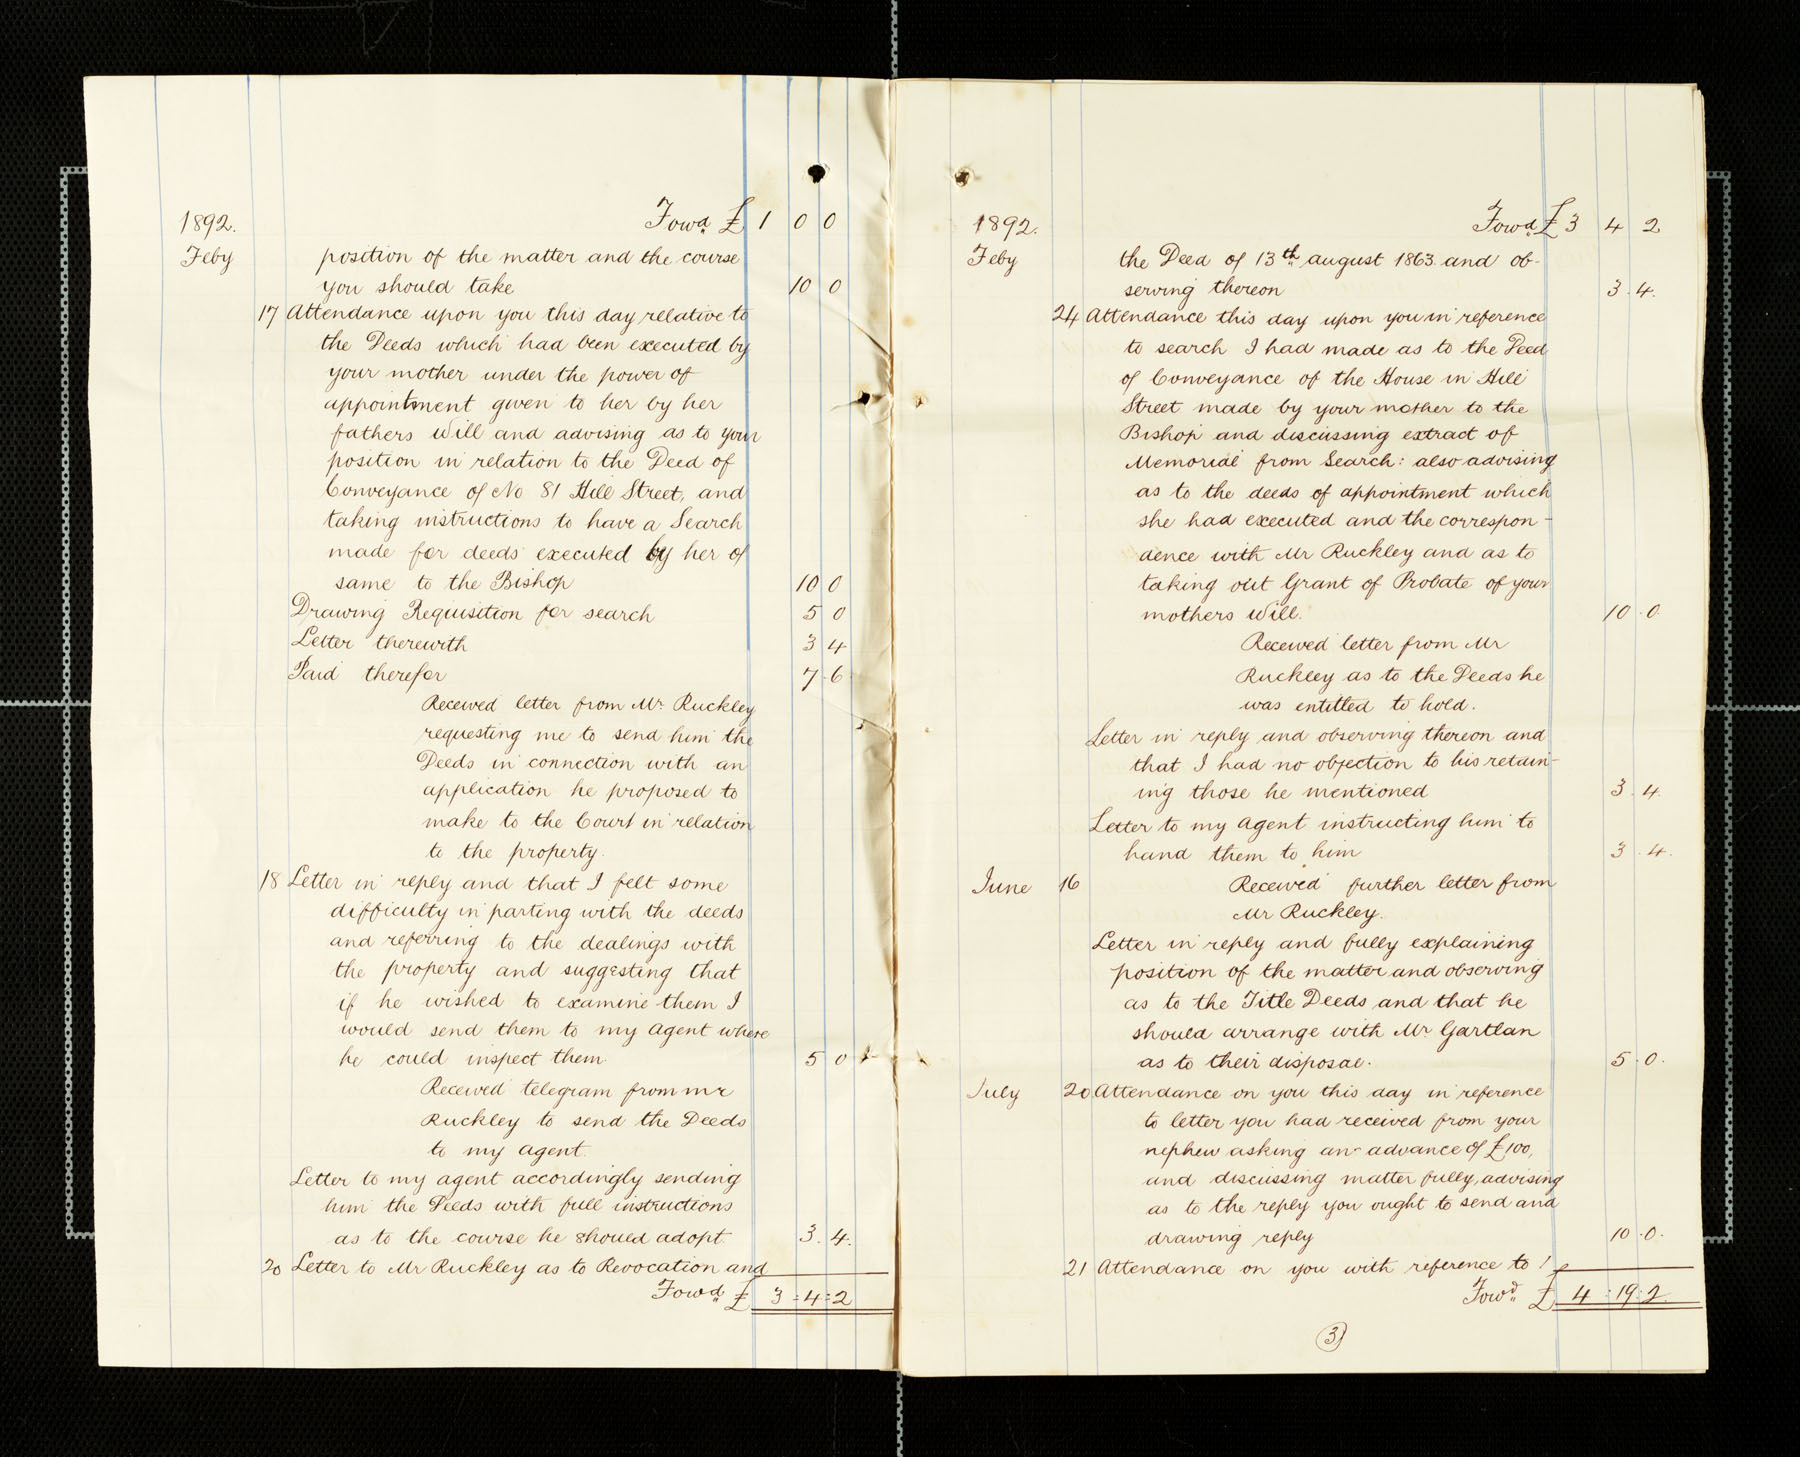 1892. Fowd. £ 1 0 0
Feby position of the matter and the course
you should take 10 0
17 Attendance upon you this day relative to
the Deeds which had been executed by
your mother under the power of
appointment given to her by her
fathers Will and advising as to your
position in relation to the Deed of
Conveyance of No 81 Hill Street, and
taking instructions to have a Search
made for deeds executed by her of
same to the Bishop 10 0
Drawing Requisition for search 5 0
Letter therewith 3 4
Paid therefor 7.6
Received letter from Mr. Ruckley
requesting me to send him the
Deeds in connection with an
application he proposed to
make to the Court in relation
to the property.
18 Letter in reply and that I felt some
difficulty in parting with the deeds
and referring to the dealings with
the property and suggesting that
if he wished to examine them I
would send them to my agent where
he could inspect them 5 0
Received telegram from Mr
Ruckley to send the Deeds
to my agent.
Letter to my agent accordingly sending
him the Deeds with full instructions
as to the course he should adopt 3.4.
20 Letter to Mr Ruckley as to Revocation and
Fowd. £ 3=4=2
1892. Fowd. £ 3 4 2
Feby the Deed of 13th. august 1863 and ob-
serving thereon 3.4.
24 Attendance this day upon you in reference
to search I had made as to the Deed
of Conveyance of the House in Hill
Street made by your mother to the
Bishop and discussing extract of
Memorial from Search: also advising
as to the deeds of appointment which
she had executed and the correspon-
dence with Mr Ruckley and as to
taking out Grant of Probate of your
mothers Will. 10.0
Received letter from Mr
Ruckley as to the Deeds he
was entitled to hold.
Letter in reply and observing thereon and
that I had no objection to his retain-
ing those he mentioned 3.4
Letter to my agent instructing him to
hand them to him 3.4.
June 16 Received further letter from
Mr Ruckley.
Letter in reply and fully explaining
position of the matter and observing
as to the Title Deeds and that he
should arrange with Mr. Gartlan
as to their disposal. 5.0.
July 20 Attendance on you this day in reference
to letter you had received from your
nephew asking an advance of £100,
and discussing matter fully, advising
as to the reply you ought to send and
drawing reply 10.0.
21 Attendance on you with reference to
Fowd. £ 4:19:2
3